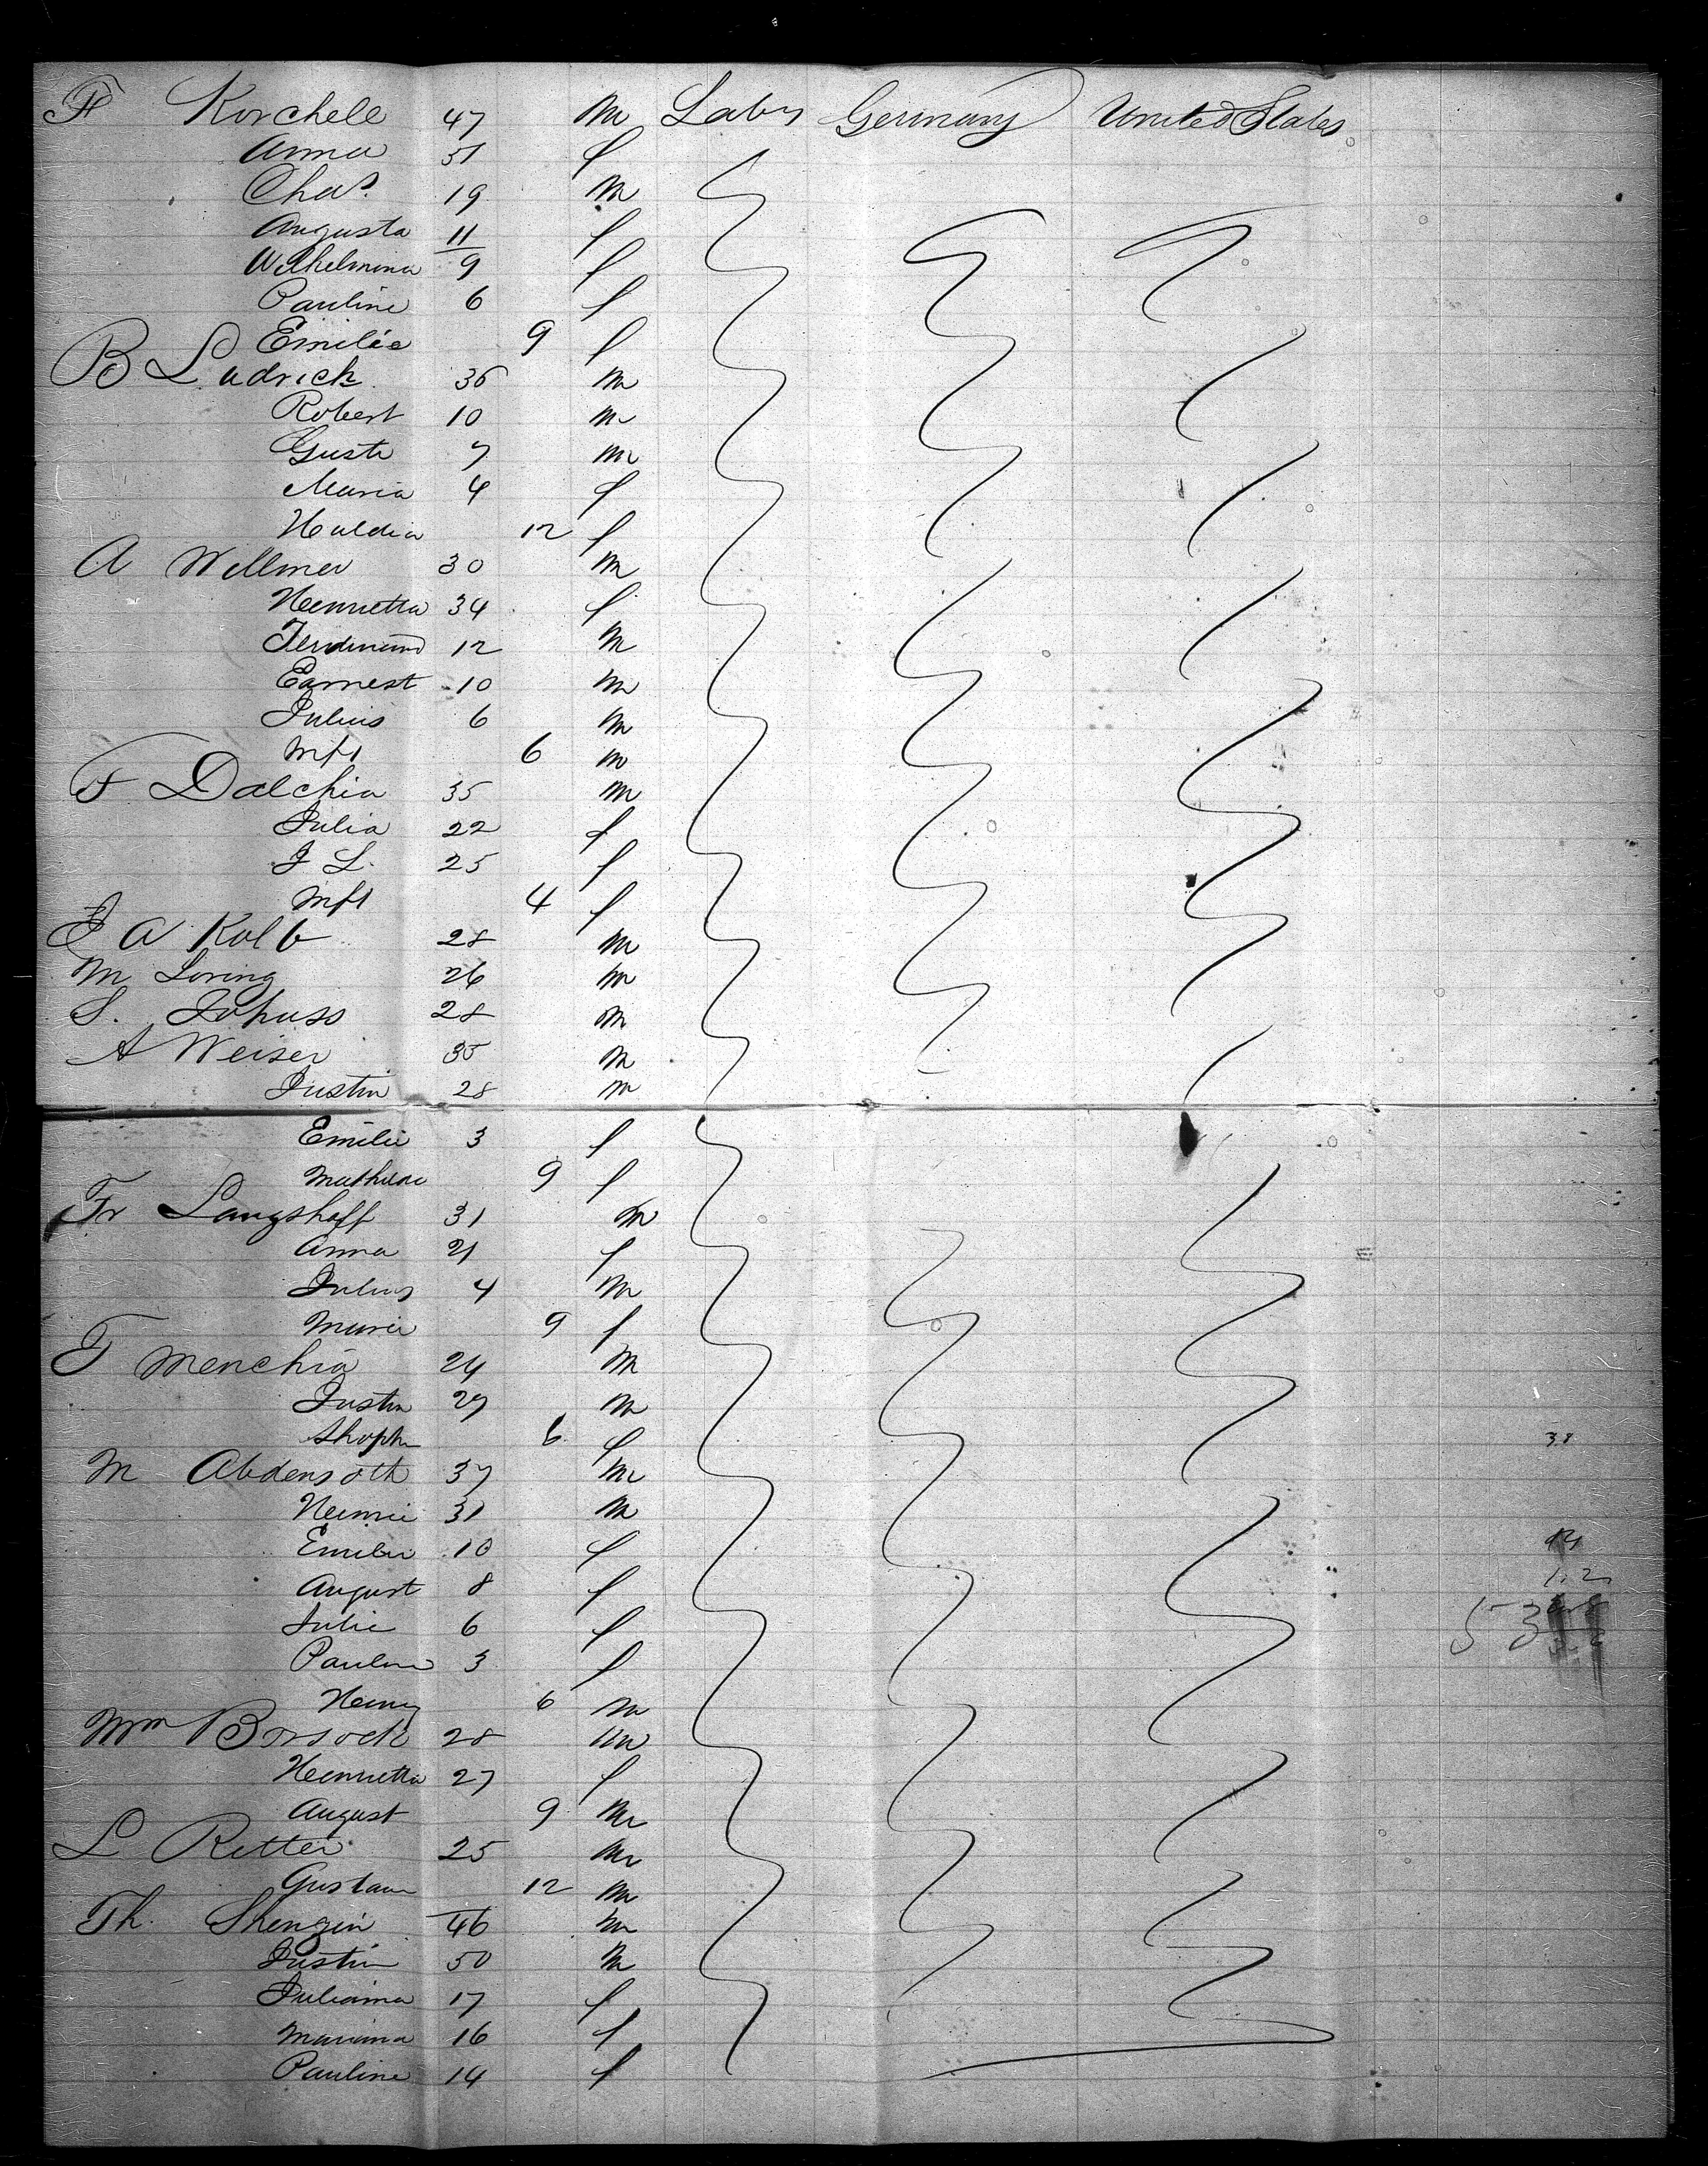 F Korchell 47 m Labr Germany United States
Anna 51 f
Chas. 19 m
Augusta 11 f
Wilhelmina 9 f
Pauline 6 f
Emilie 9 f
B Ludrick 36 m
Robert 10 m
Guste 7 m
Maria 4 f
Huldia 12 f
A Wellmer 30 m
Henrietta 34 f
Ferdinand 12 m
Earnest 10 m
Julius 6 m
Inft 6 m
F Dalchia 35 m
Julia 22 f
J L. 25 f
Inft 4 f
J A Kolb 28 m
M Loring 26 m
S. Johuss 28 m
A Weiser 35 m
Justin 28 m
Emilie 3 f
Mathilde 9 f
Fr Langshaff 31 m
Anna 21 f
Julius 4 m
Marie 9 f
T Menchia 24 m
Justin 27 m
6 f
38
M Abdensoth 37 m
31 m
Emilie 10 f
94
August 8 f
Julie 6 f
53
Pauline 3 f
Henry 6 m
Wm Borsock 28 m
Henrietta 27 f
August 9 m
L Retter 25 m
Gustav 12 m
Th. Shengin 46 m
Justin 50 m
Juliana 17 f
Mariana 16 f
Pauline 14 f